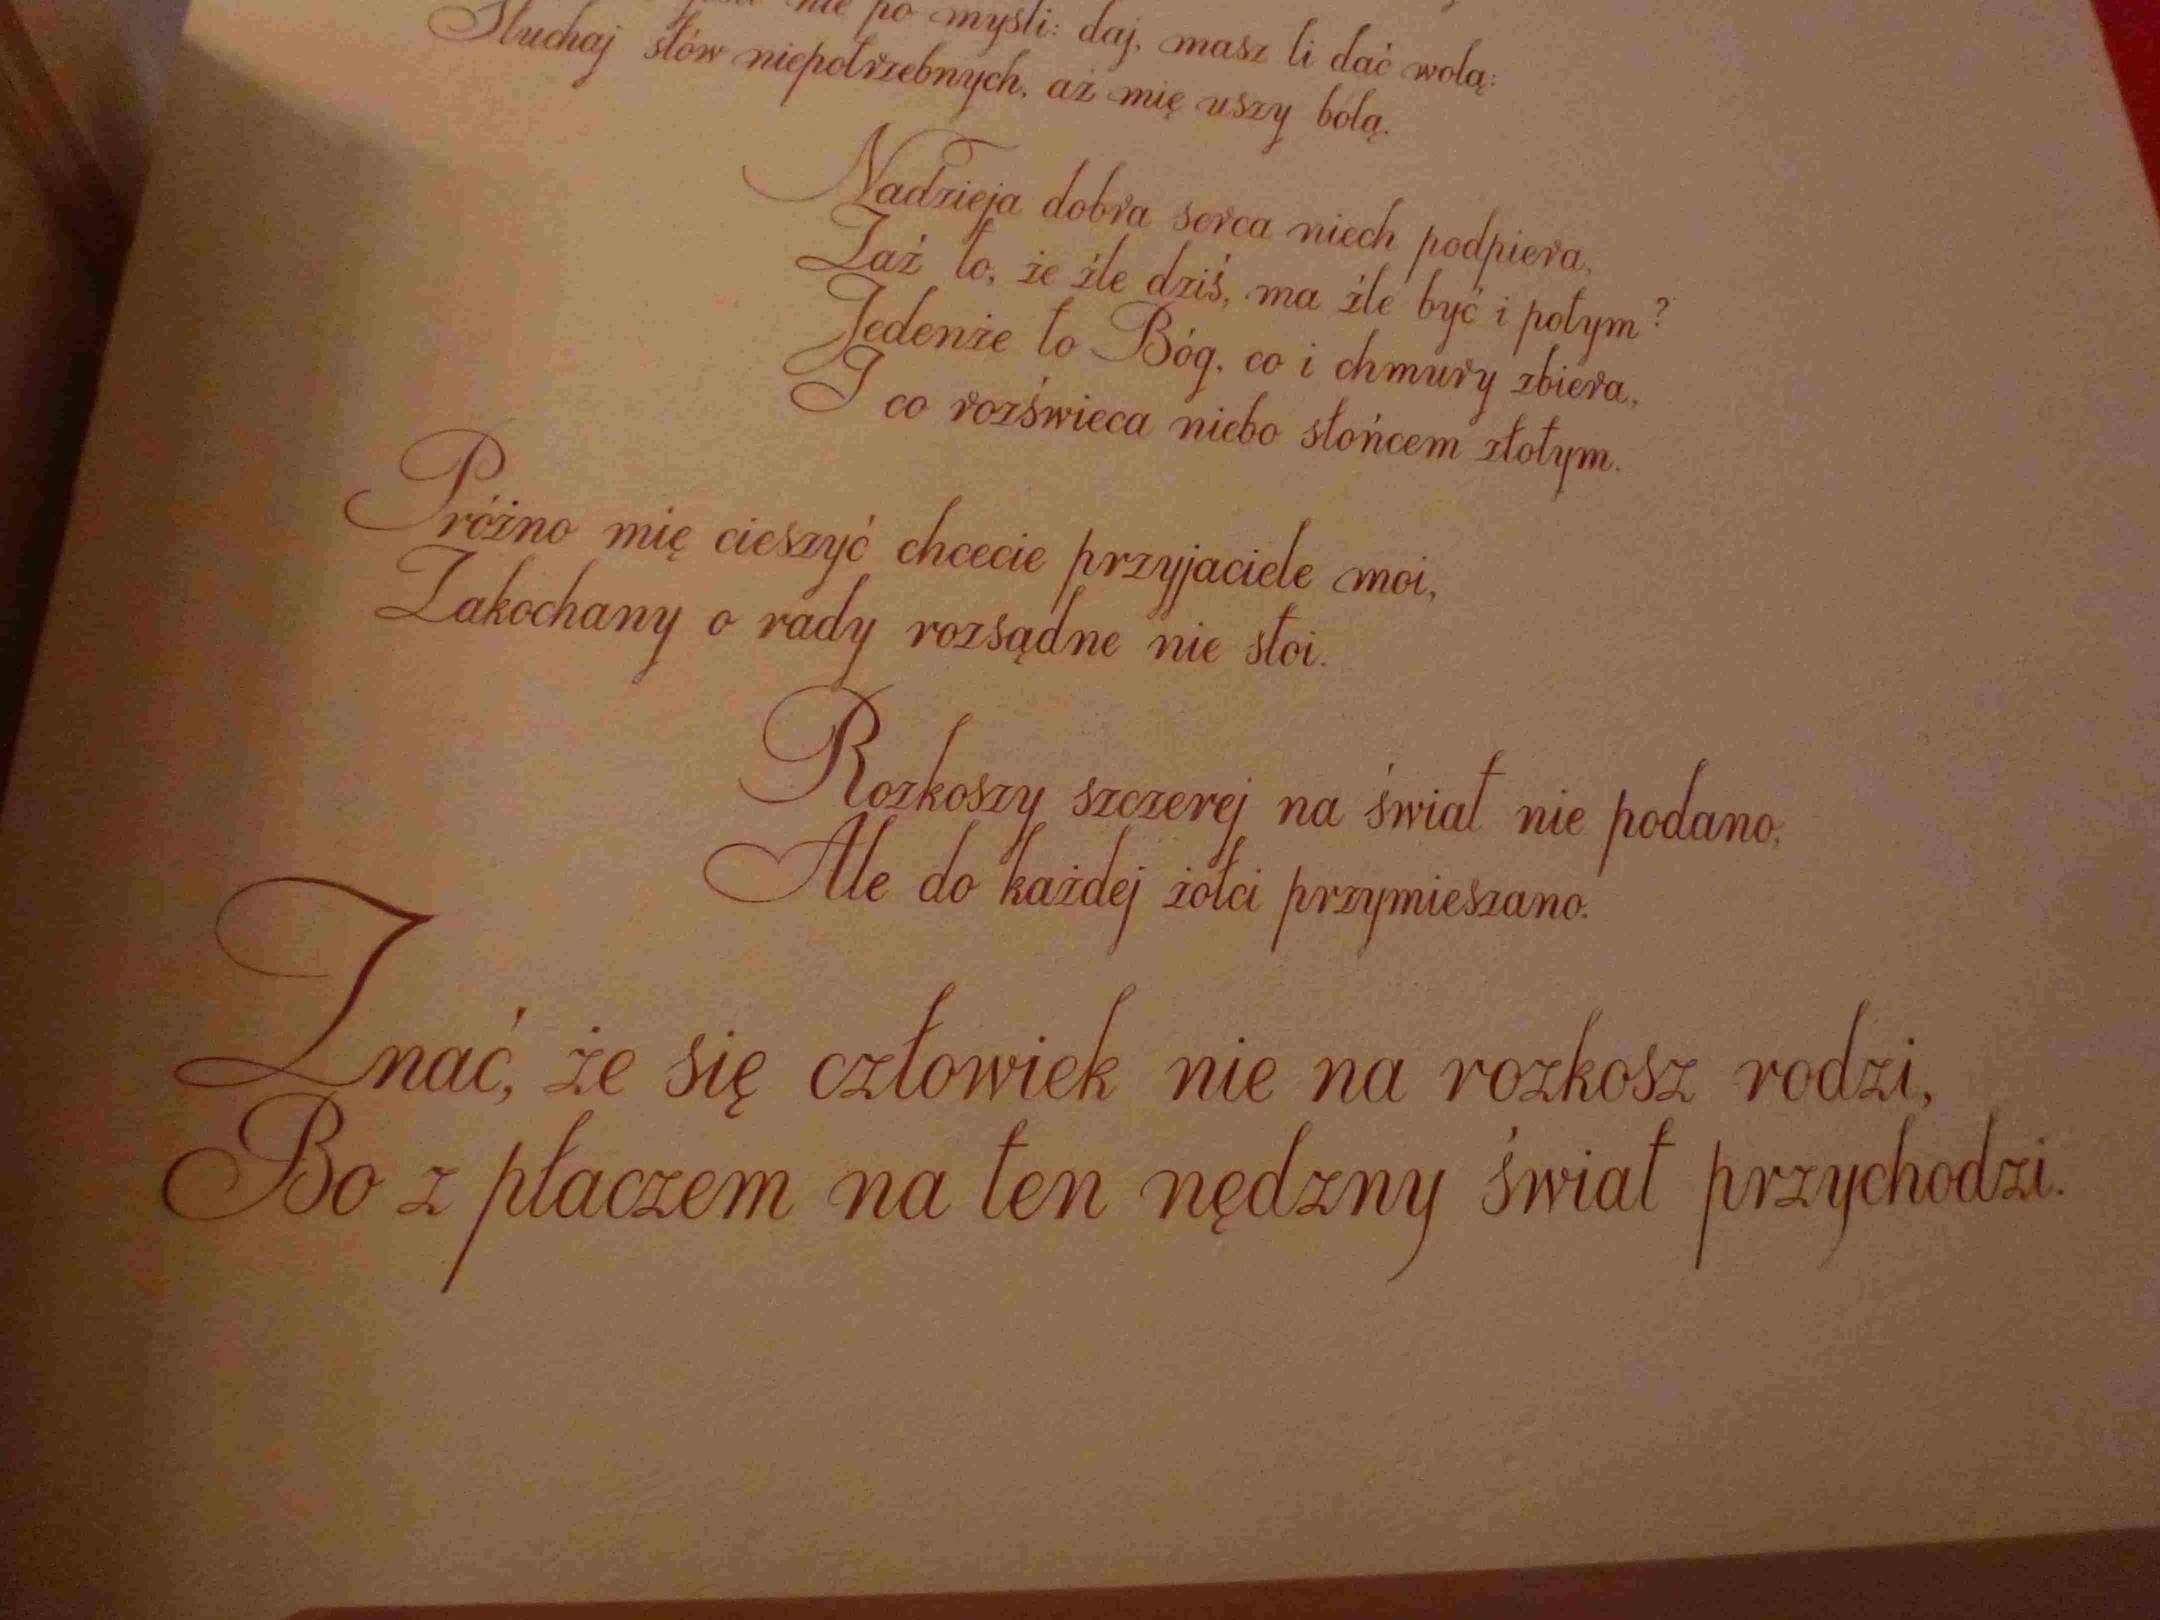 nie po myśli: daj, masz li dać wolą:
Słuchaj słów niepotrzebnych, aż mię uszy bolą.
Nadzieja dobra serca niech podpiera,
Zaż to, że źle dziś, ma źle być i potym?
Jedenże to Bóg, co i chmury zbiera,
I co rozświeca niebo słońcem złotym.
Próżno mię cieszyć chcecie przyjaciele moi,
Zakochany o rady rozsądne nie stoi.
Rozkoszy szczerej na świat nie podano,
Ale do każdej żółci przymieszano.
Znać, że się człowiek nie na rozkosz rodzi,
Bo z płaczem na ten nędzny świat przychodzi.